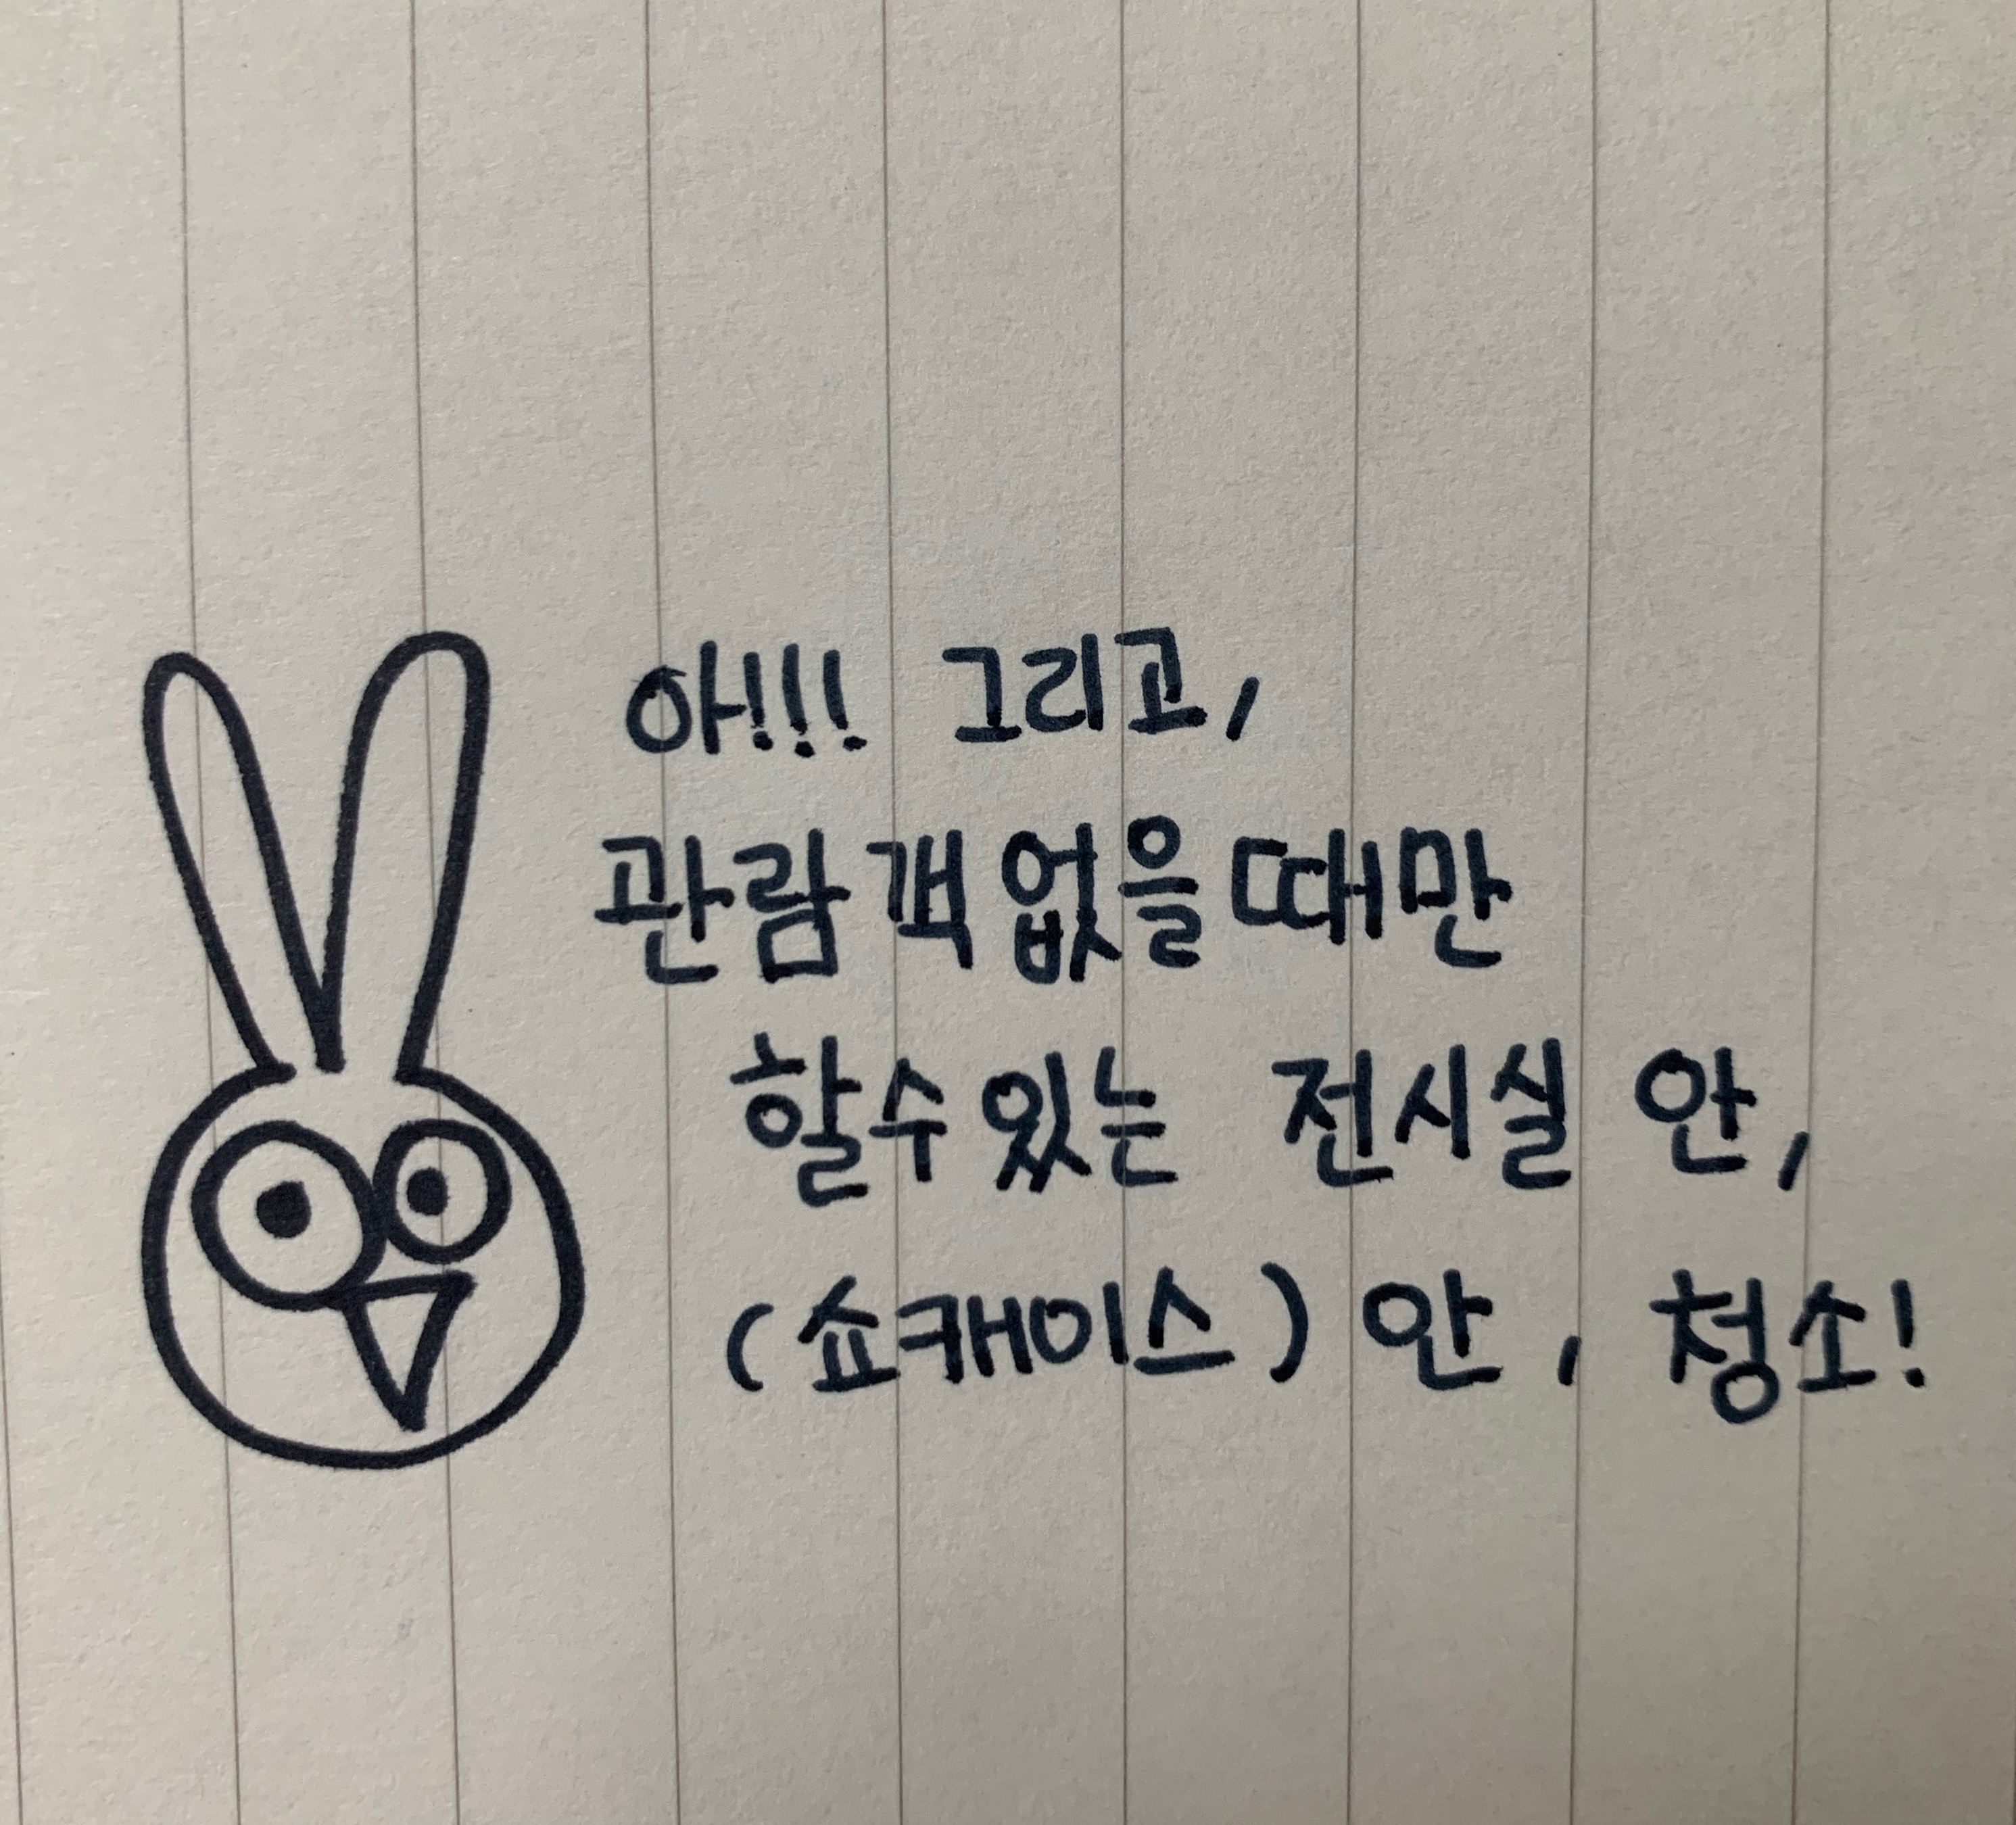 아!!! 그리고,
관람객 없을때만
할수있는 전시실 안,
(쇼캐이스) 안, 청소!